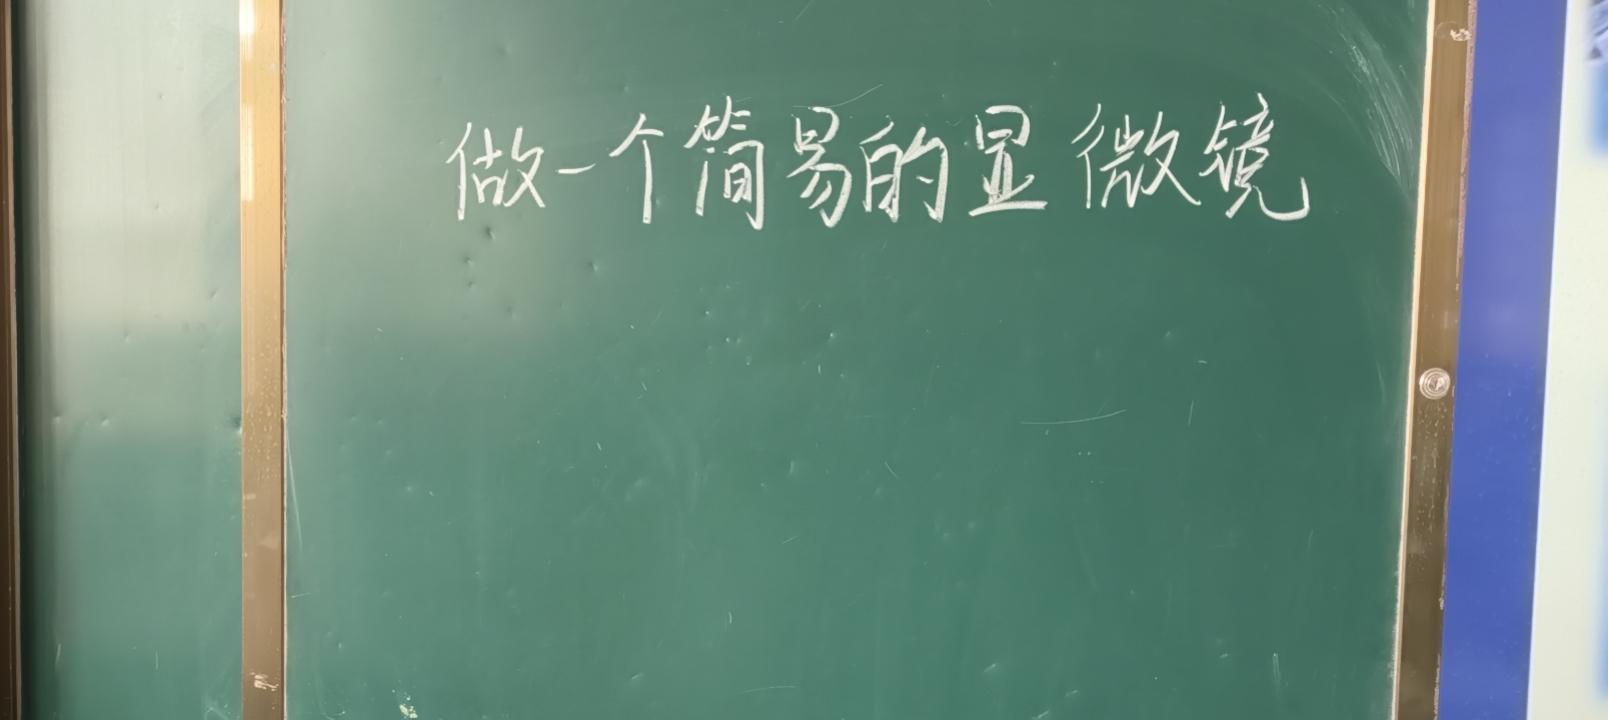 做一个简易的显微镜